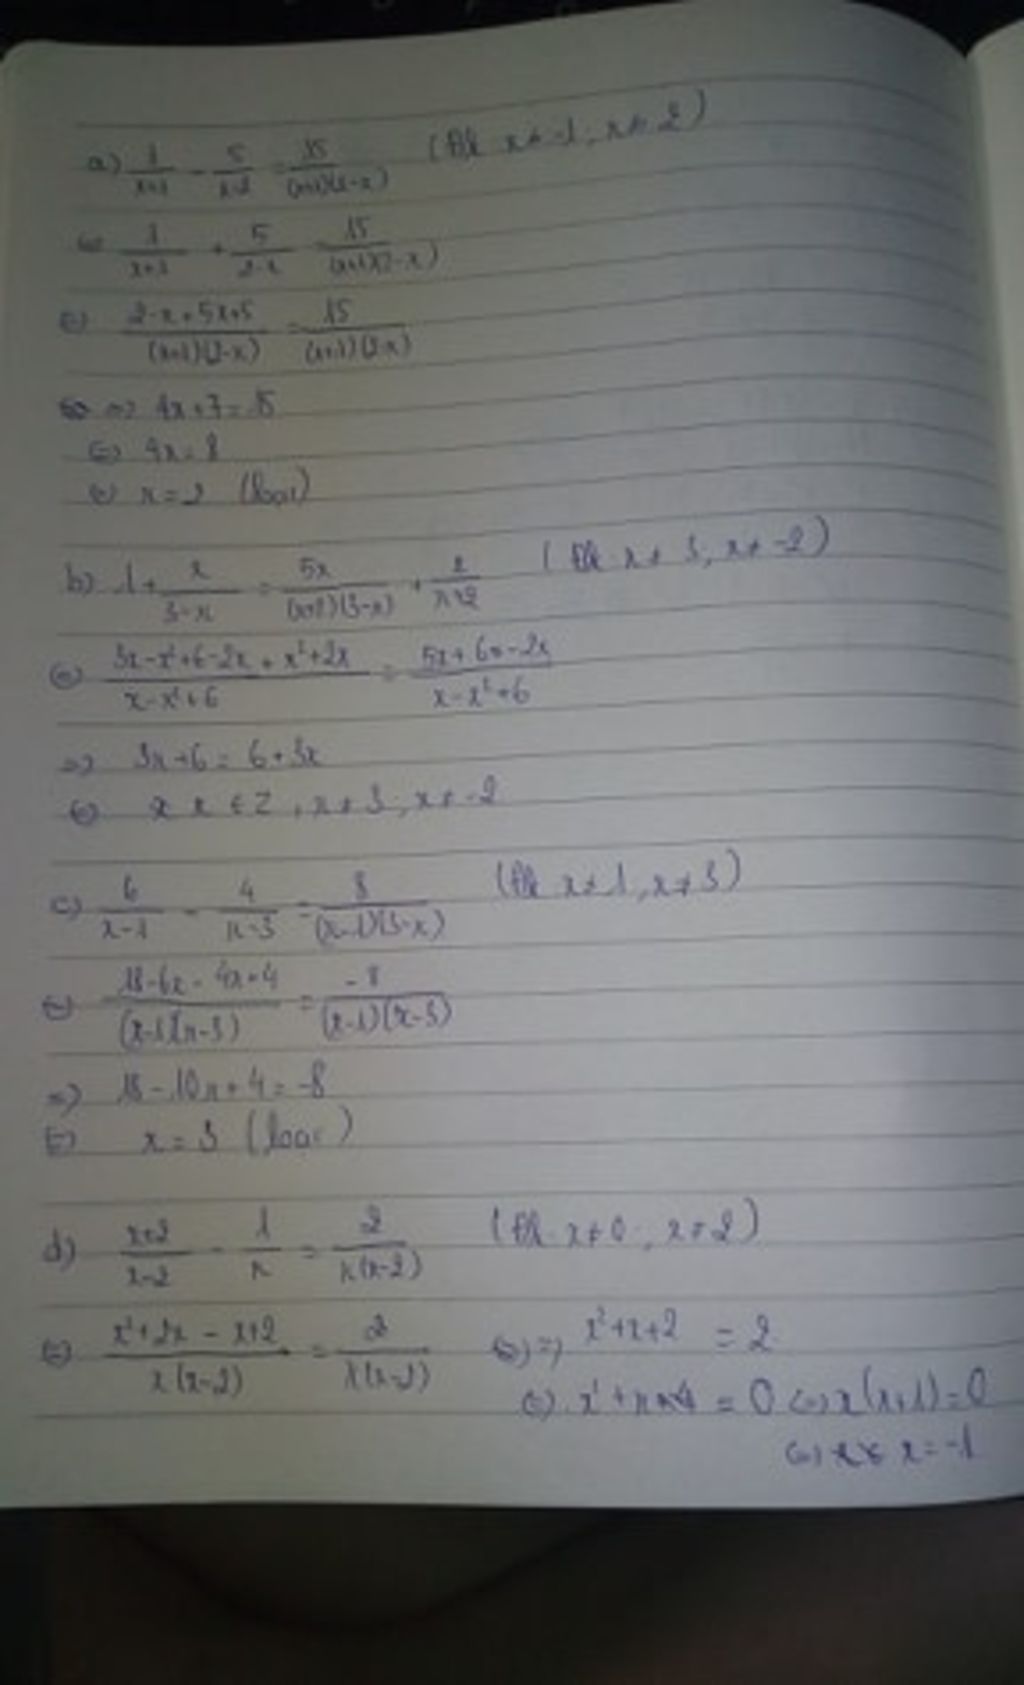 a) 1/(x+1) - 5/(x-2) = 15/((x+1)(2-x)) (đk x ≠ -1, x ≠ 2)
<=> 1/(x+1) + 5/(2-x) = 15/((x+1)(2-x))
<=> (2-x+5x+5)/((x+1)(2-x)) = 15/((x+1)(2-x))
=> 4x+7 = 15
<=> 4x = 8
<=> x = 2 (loại)
b) 1 + x/(3-x) = 5x/((x+2)(3-x)) + 2/(x+2) (đk x ≠ 3, x ≠ -2)
<=> (3x-x²+6-2x+x²+2x)/(x-x²+6) = (5x+6-2x)/(x-x²+6)
=> 3x+6 = 6+3x
<=> x ∈ Z, x ≠ 3, x ≠ -2
c) 6/(x-1) - 4/(x-3) = 8/((x-1)(3-x)) (đk x ≠ 1, x ≠ 3)
<=> (18-6x-4x+4)/((x-1)(x-3)) = -8/((x-1)(x-3))
=> 18-10x+4 = -8
<=> x = 3 (loại)
d) (x+2)/(x-2) - 1/x = 2/(x(x-2)) (đk x ≠ 0, x ≠ 2)
<=> (x²+2x-x+2)/(x(x-2)) = 2/(x(x-2)) => x²+x+2 = 2
<=> x²+x = 0 <=> x(x+1) = 0
<=> x = -1